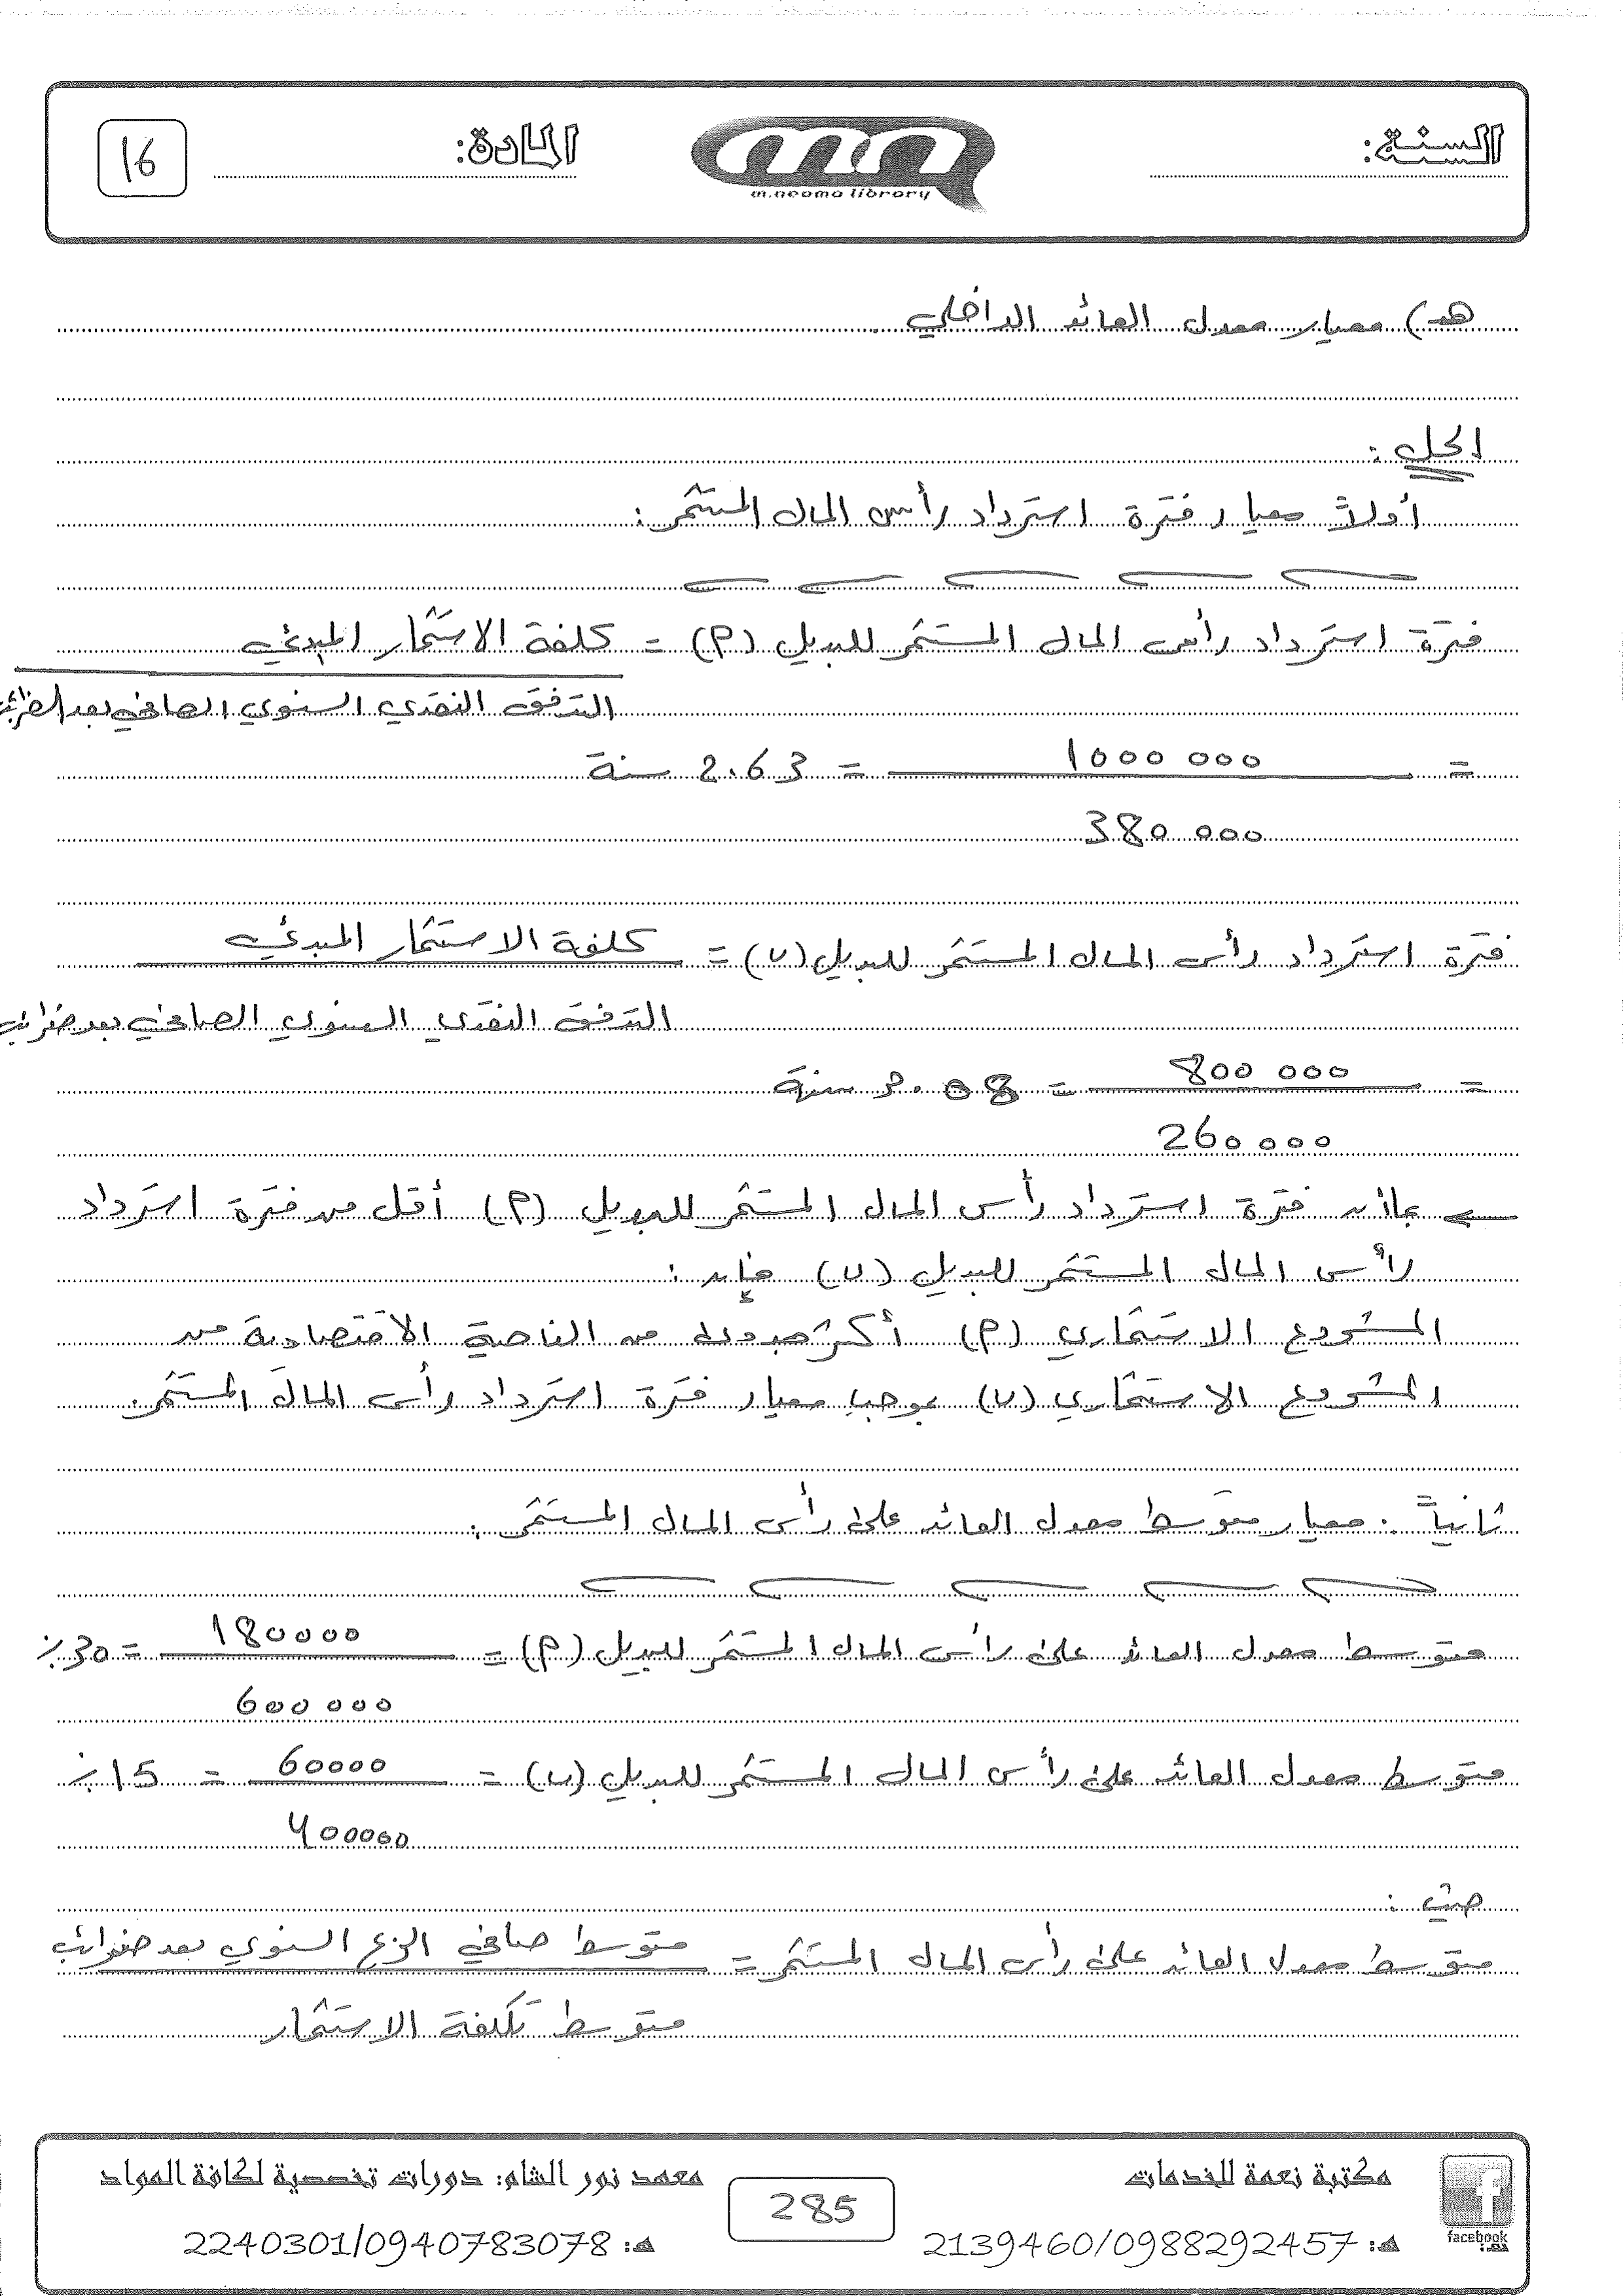 السنة:
m.neoma library
المادة:
16
هـ) معيار معدل العائد الداخلي
الحل:
أولاً معيار فترة استرداد رأس المال المستثمر:
فترة استرداد رأس المال المستثمر للبديل (P) = كلفة الاستثمار المبدئي
التدفق النقدي السنوي الصافي بعد الضرائب
= 1000 000 = 2.63 سنة
380 000
فترة استرداد رأس المال المستثمر للبديل (ب) = كلفة الاستثمار المبدئي
التدفق النقدي السنوي الصافي بعد ضرائب
= 800 000 = 3.08 سنة
260 000
بما أن فترة استرداد رأس المال المستثمر للبديل (P) أقل من فترة استرداد
رأس المال المستثمر للبديل (ب) فإن:
المشروع الاستثماري (P) أكثر جدوى من الناحية الاقتصادية من
المشروع الاستثماري (ب) بموجب معيار فترة استرداد رأس المال المستثمر.
ثانياً: معيار متوسط معدل العائد على رأس المال المستثمر:
متوسط معدل العائد على رأس المال المستثمر للبديل (P) = 180000 = 30%
600 000
متوسط معدل العائد على رأس المال المستثمر للبديل (ب) = 60000 = 15%
400000
حيث:
متوسط معدل العائد على رأس المال المستثمر = متوسط صافي الربح السنوي بعد ضرائب
متوسط تكلفة الاستثمار
facebook
مكتبة نعمة للخدمات
هـ: 2139460/0988292457
285
معهد نور الشام: دورات تخصصية لكافة المواد
هـ: 2240301/0940783078